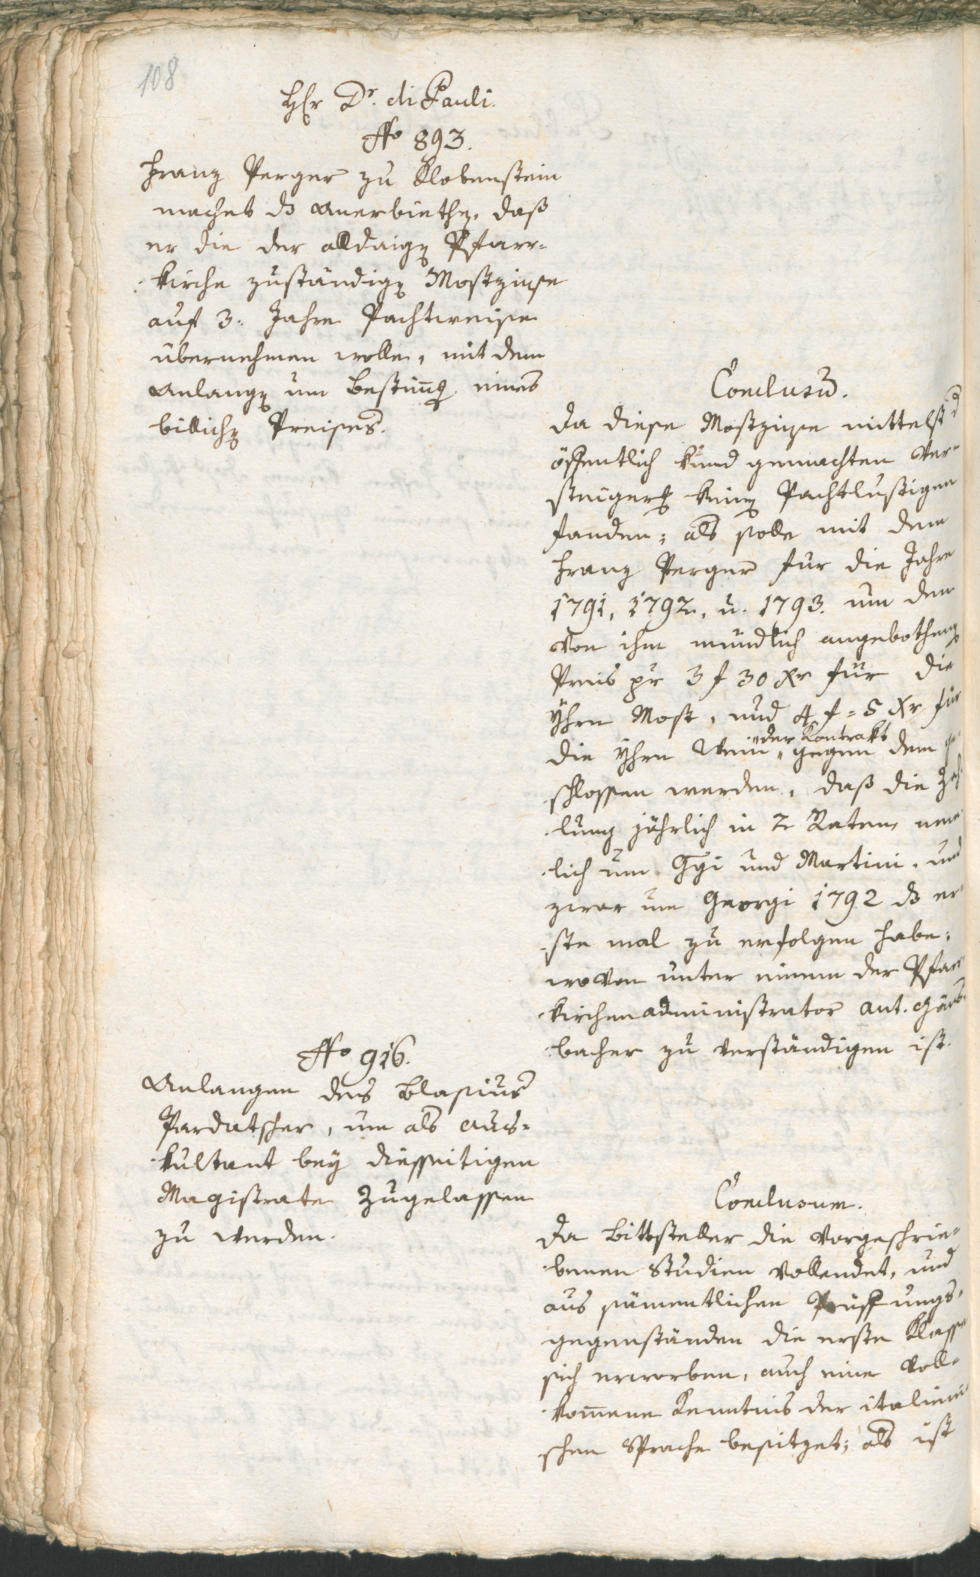 108
Hr Dr. di Pauli.
No 893.
Franz Perger zu Klobenstein
machet ds Anerbiethen, daß
er die der alldaigen Pfarr-
kirche zuständigen Mostzinse
auf 3. Jahre Pachtweise
übernehmen wolle, mit dem
Anlangen um Bestimmung eines
billichen Preises.
Conclusum.
Da diese Mostzinse mittelst
öffentlich kund gemachten Ver-
steigerung keinen Pachtlustigen
fanden; als solle mit dem
Franz Perger für die Jahre
1791, 1792, u. 1793. um den
von ihm mündlich angebothenen
Preis pr 3 f 30 Xr für die
Yhrn Most, und 4 f = 5 Xr für
die Yhrn Wein, der Kontrakt gegen dem ge-
schlossen werden, daß die Zah-
lung jährlich in 2 Raten, nem-
lich um Ggi und Martini, und
zwar um Georgi 1792 ds er-
ste mal zu erfolgen habe;
wovon unter einem der Pfarr-
kirchenadministrator Ant.
bacher zu verständigen ist.
No 916.
Anlangen des Blasius
Pardatscher, um als Aus-
kultant bey diesseitigen
Magistrate zugelassen
zu werden.
Conclusum.
Da Bittsteller die vorgeschrie-
benen Studien vollendet, und
aus sämentlichen Prüfungs-
gegenständen die erste Klasse
sich erworben, auch eine voll-
kommene Kenntnis der italieni-
schen Sprache besitzet; als ist